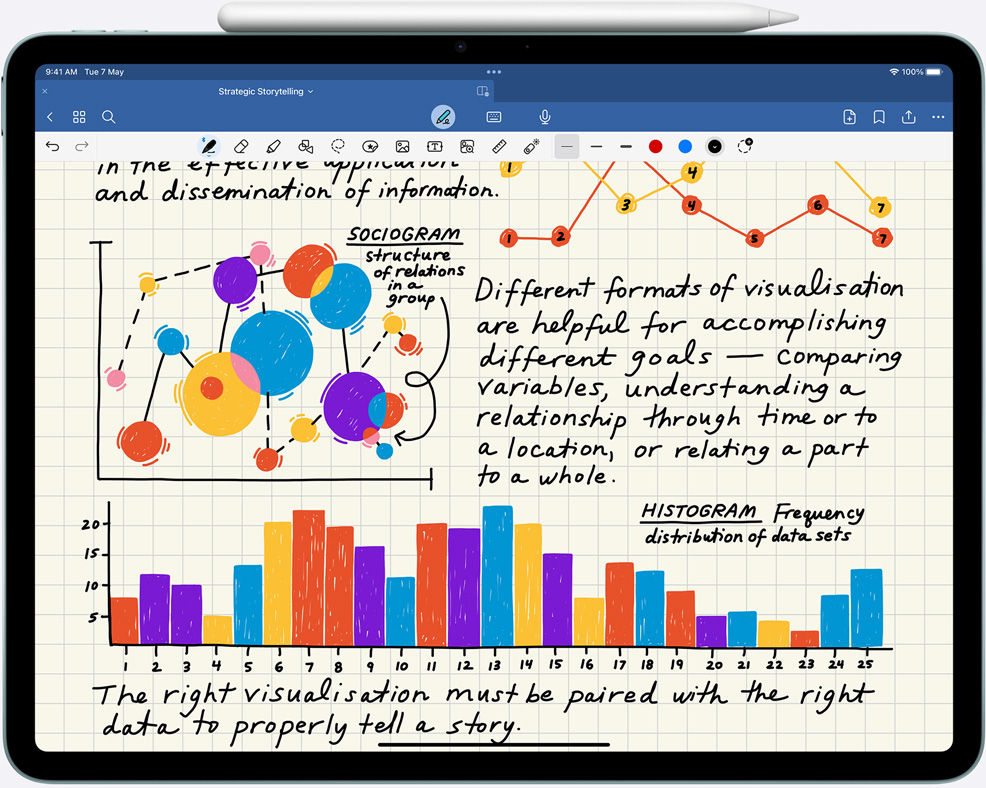 9:41 AM Tue 7 May
100%
Strategic Storytelling
in the effective application
and dissemination of information.
1
3
4
7
1
2
4
5
6
7
SOCIOGRAM
structure
of relations
in a
group
Different formats of visualisation
are helpful for accomplishing
different goals — comparing
variables, understanding a
relationship through time or to
a location, or relating a part
to a whole.
HISTOGRAM Frequency
distribution of data sets
20
15
10
5
1 2 3 4 5 6 7 8 9 10 11 12 13 14 15 16 17 18 19 20 21 22 23 24 25
The right visualisation must be paired with the right
data to properly tell a story.